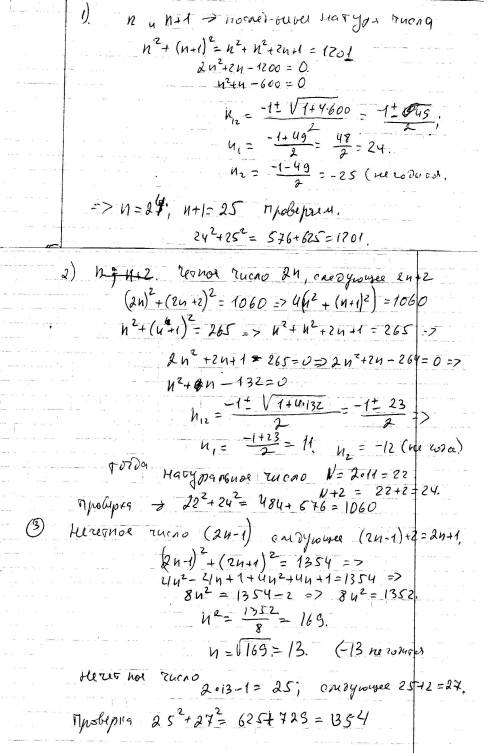 1).
n и n+1 → послед-ьные натур числа
n² + (n+1)² = n² + n² + 2n+1 = 1201
2n²+2n-1200 = 0.
n²+n-600=0
n₁₂ = (-1±√(1+4·600))/2 = (-1±49)/2;
n₁ = (-1+49)/2 = 48/2 = 24.
n₂ = (-1-49)/2 = -25 (не годится.
=> n=24; n+1=25 проверяем.
24²+25² = 576+625=1201.
2) Четное число 2n, следующее 2n+2
(2n)²+(2n+2)² = 1060 => 4(n²+(n+1)²)=1060
n²+(n+1)² = 265 => n²+n²+2n+1 = 265 =>
2n²+2n+1-265=0 => 2n²+2n-264=0 =>
n²+n-132=0
n₁₂ = (-1±√(1+4·132))/2 = (-1±23)/2 =>
n₁ = (-1+23)/2 = 11. n₂ = -12
тогда
натуральное число N = 2·11 = 22
N+2 = 22+2=24.
Проверка → 22²+24² = 484+576=1060
③ Нечетное число (2n-1) следующее (2n-1)+2=2n+1.
(2n-1)²+(2n+1)² = 1354 =>
4n²-4n+1+4n²+4n+1=1354 =>
8n² = 1354-2 => 8n²=1352.
n² = 1352/8 = 169.
n=√169 = 13. (-13 не годится
Нечетное число
2·13-1=25; следующее 25+2=27.
Проверка 25²+27² = 625+729 = 1354